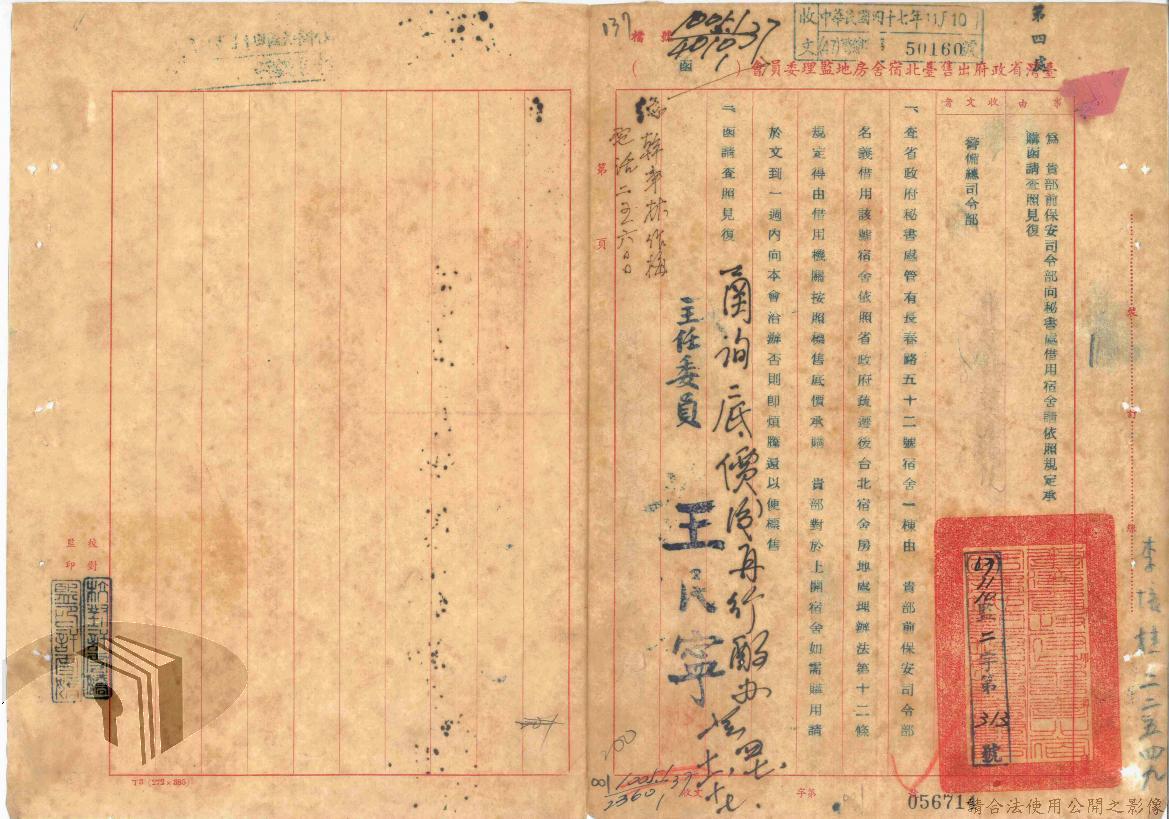 第四處
收文
中華民國四十七年11月10日
50160號
臺灣省政府出售臺北宿舍房地監理委員會（函）
檔號
137
10051
4010
37
1
事由
收文者
為　貴部前保安司令部向秘書處借用宿舍請依照規定承
購函請查照見復
警備總司令部
一、查省政府秘書處管有長春路五十二號宿舍一棟由　貴部前保安司令部
名義借用該號宿舍依照省政府疏遷後台北宿舍房地處理辦法第十二條
規定得由借用機關按照標售底價承購　貴部對於上開宿舍如需購用請
於文到一週內向本會洽辦否則即煩騰還以便標售
二、函請查照見復
主任委員　王民寧
函詢底價後再行酌辦
電話二五六
第　頁
47 11 10 監二字第313號
裝
訂
線
二三五四九
校對
監印
字第
收文
200
10051
2360
37
1
001
T3 (272×385)
056714
請合法使用公開之影像